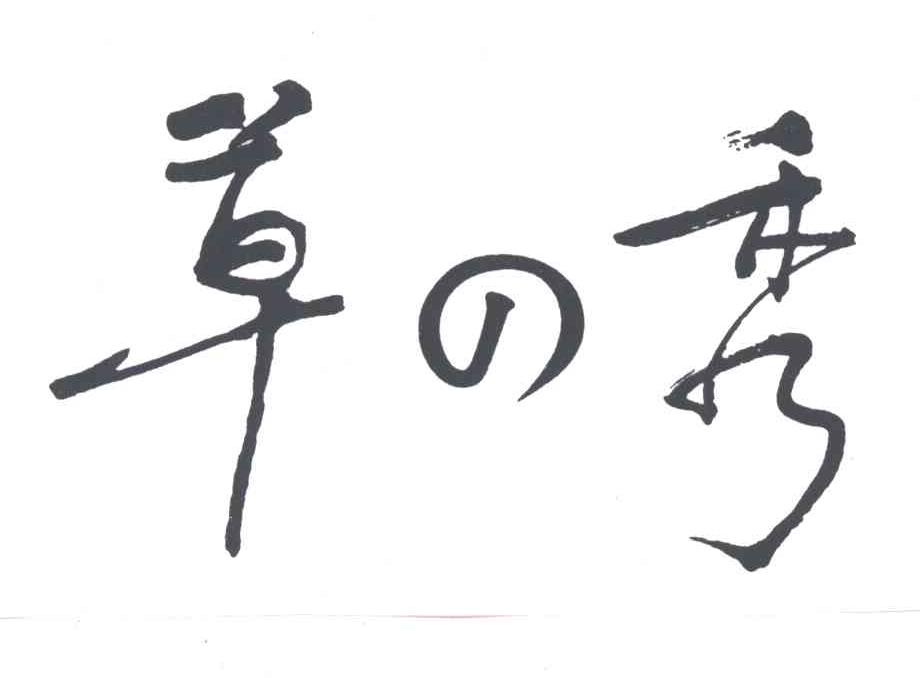 草の秀